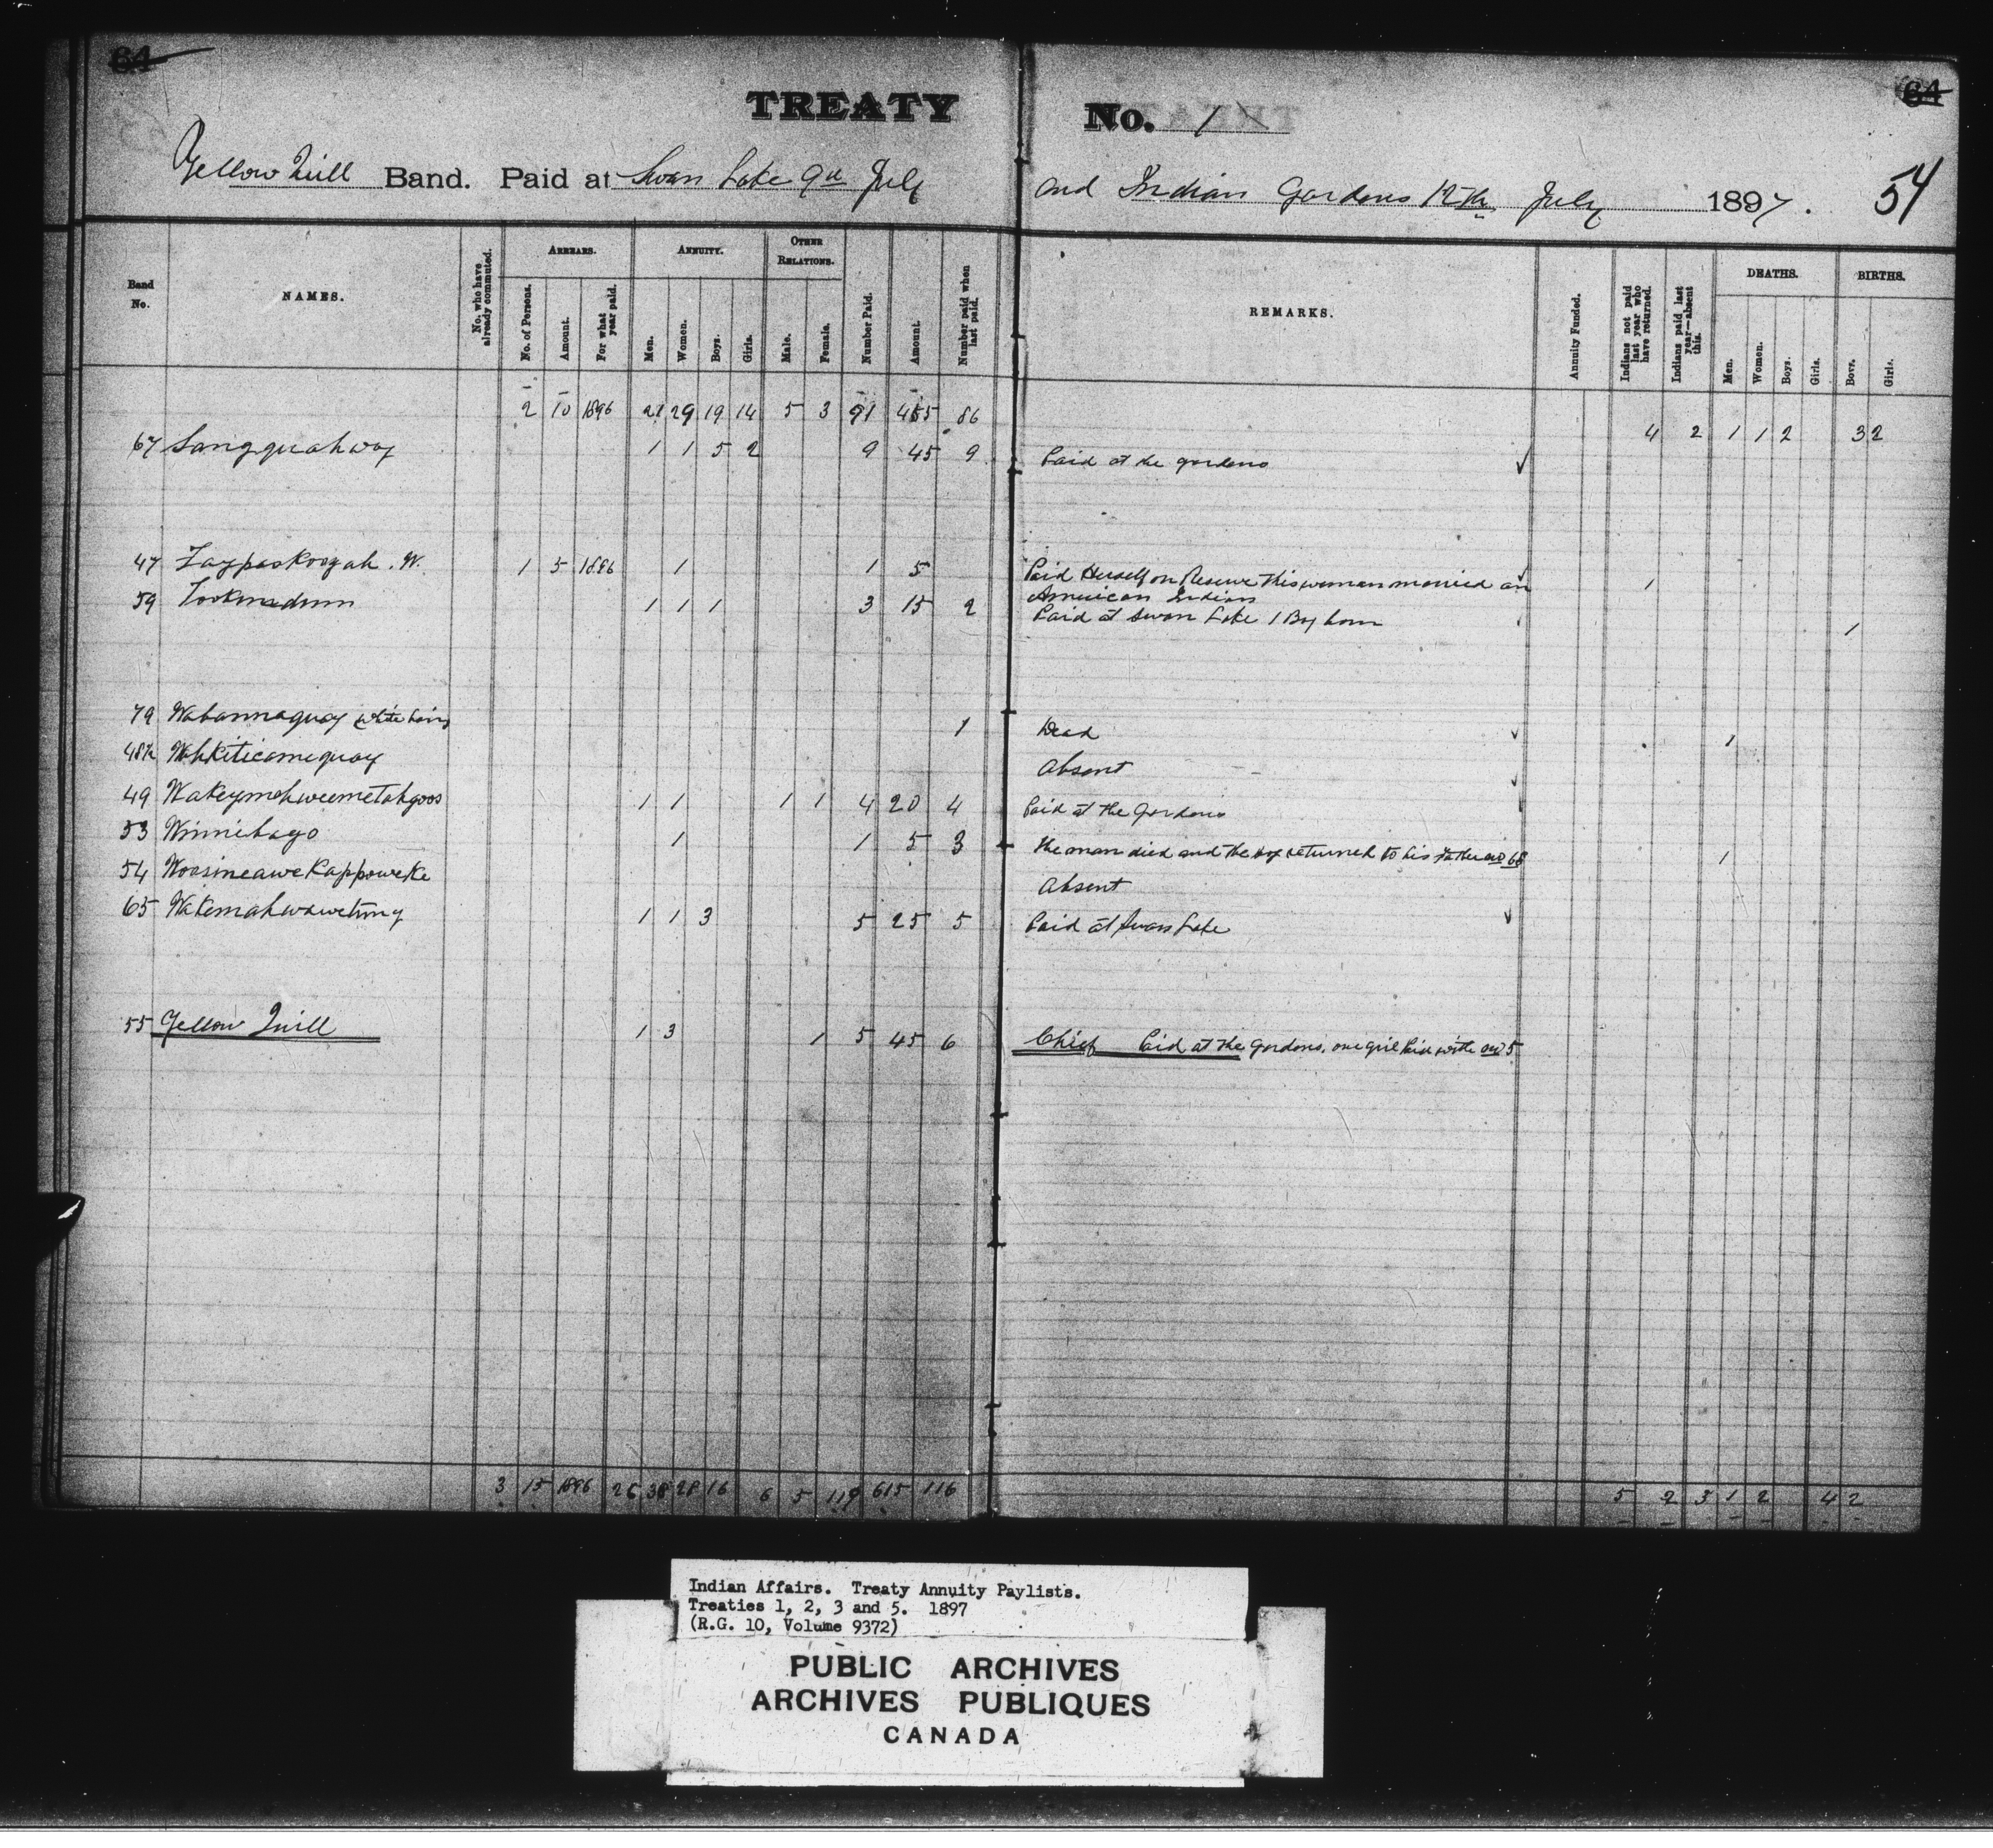 64
64
TREATY No. 1
Yellow Quill Band. Paid at Swan Lake 9th July and Indian Gardens 12th July 1897.
54
Band No.
NAMES.
No. who have already commuted.
ARREARS.
No. of Persons.
Amount.
For what year paid.
ANNUITY.
Men.
Women.
Boys.
Girls.
OTHER RELATIONS.
Male.
Female.
Number Paid.
Amount.
Number paid when last paid.
REMARKS.
Annuity Funded.
Indians not paid last year who have returned.
Indians paid last year—absent this.
DEATHS.
Men.
Women.
Boys.
Girls.
BIRTHS.
Boys.
Girls.
2 10 1896 21 29 19 14 5 3 91 455 86 4 2 1 1 2 3 2
67 Sangquahway 1 1 5 2 9 45 9 Paid at the gardens
47 Taypaskoogah. W. 1 5 1896 1 1 5 Paid Herself on Reserve this woman married an 1
American Indian
59 Tookinadum 1 1 1 3 15 2 Paid at Swan Lake 1 Boy born 1
79 Wabannaquay (white hair) 1 Dead 1
48½ Wahkiticamequay Absent
49 Wakeymahweemetahgoos 1 1 1 1 4 20 4 Paid at the Gardens
53 Winnibago 1 1 5 3 the man died and the boy returned to his Father no 68 1
54 Woasineawekappoweke Absent
65 Wakemahwawetung 1 1 3 5 25 5 Paid at Swan Lake
55 Yellow Quill 1 3 1 5 45 6 Chief Paid at the Gardens, one girl Paid with no 5
3 15 1896 26 38 28 16 6 5 119 615 116 5 2 3 1 2 4 2
Indian Affairs. Treaty Annuity Paylists.
Treaties 1, 2, 3 and 5. 1897
(R.G. 10, Volume 9372)
PUBLIC ARCHIVES
ARCHIVES PUBLIQUES
CANADA